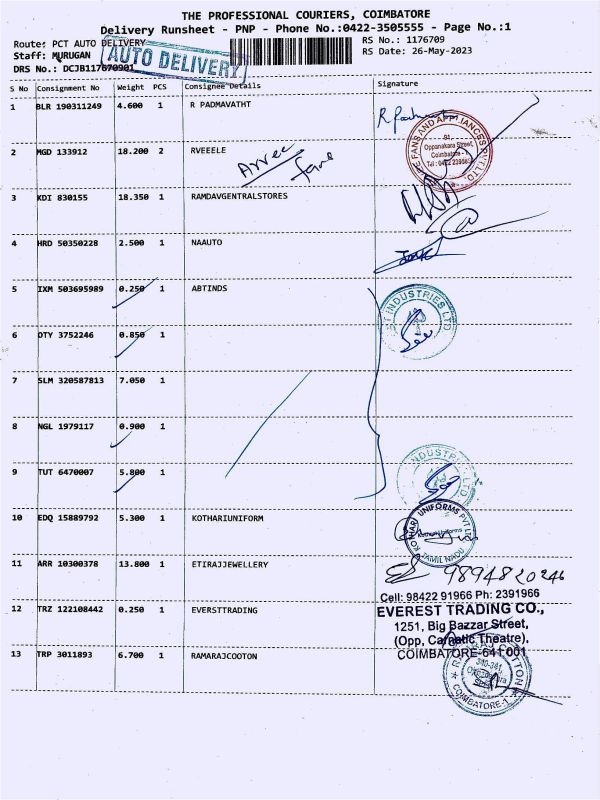 THE PROFESSIONAL COURIERS, COIMBATORE
Delivery Runsheet - PNP - Phone No.:0422-3505555 - Page No.:1
Route: PCT AUTO DELIVERY
RS No.: 1176709
Staff: MURUGAN
RS Date: 26-May-2023
DRS No.: DCJB117670901
AUTO DELIVERY
S No Consignment No Weight PCS Consignee Details Signature
1 BLR 190311249 4.600 1 R PADMAVATHT
2 MGD 133912 18.200 2 RVEEELE
FANS AND APPLIANCES PVT LTD
Oppanakara Street,
Coimbatore -
3 KDI 830155 18.350 1 RAMDAVGENTRALSTORES
4 HRD 50350228 2.500 1 NAAUTO
5 IXM 503695989 0.250 1 ABTINDS
INDUSTRIES LTD
6 OTY 3752246 0.850 1
7 SLM 320587813 7.050 1
8 NGL 1979117 0.900 1
9 TUT 6470007 5.800 1
INDUSTRIES LTD
10 EDQ 15889792 5.300 1 KOTHARIUNIFORM
KOTHARI UNIFORMS PVT LTD
TAMIL NADU
11 ARR 10300378 13.800 1 ETIRAJJEWELLERY
9894820246
12 TRZ 122108442 0.250 1 EVERSTTRADING
Cell: 98422 91966 Ph: 2391966
EVEREST TRADING CO.,
1251, Big Bazzar Street,
(Opp, Carnatic Theatre).
COIMBATORE-641 001
13 TRP 3011893 6.700 1 RAMARAJCOOTON
COTTON
COIMBATORE-1